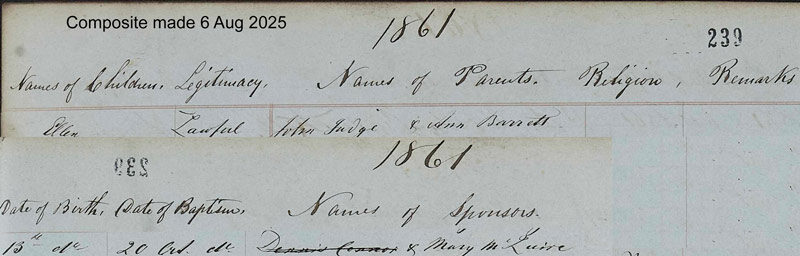 Composite made 6 Aug 2025
1861
239
Names of Children. Legitimacy. Names of Parents. Religion. Remarks
Ellen Lawful John Judge & Ann Barrett
1861
239
Date of Birth. Date of Baptism. Names of Sponsors.
13th do 20 Oct. do Dennis Connor & Mary McGuire